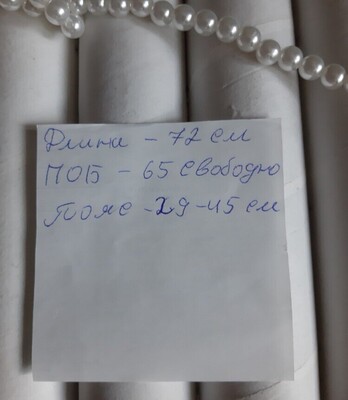 Длина - 72 см
ПОБ - 65 свободно
Пояс - 29 - 45 см